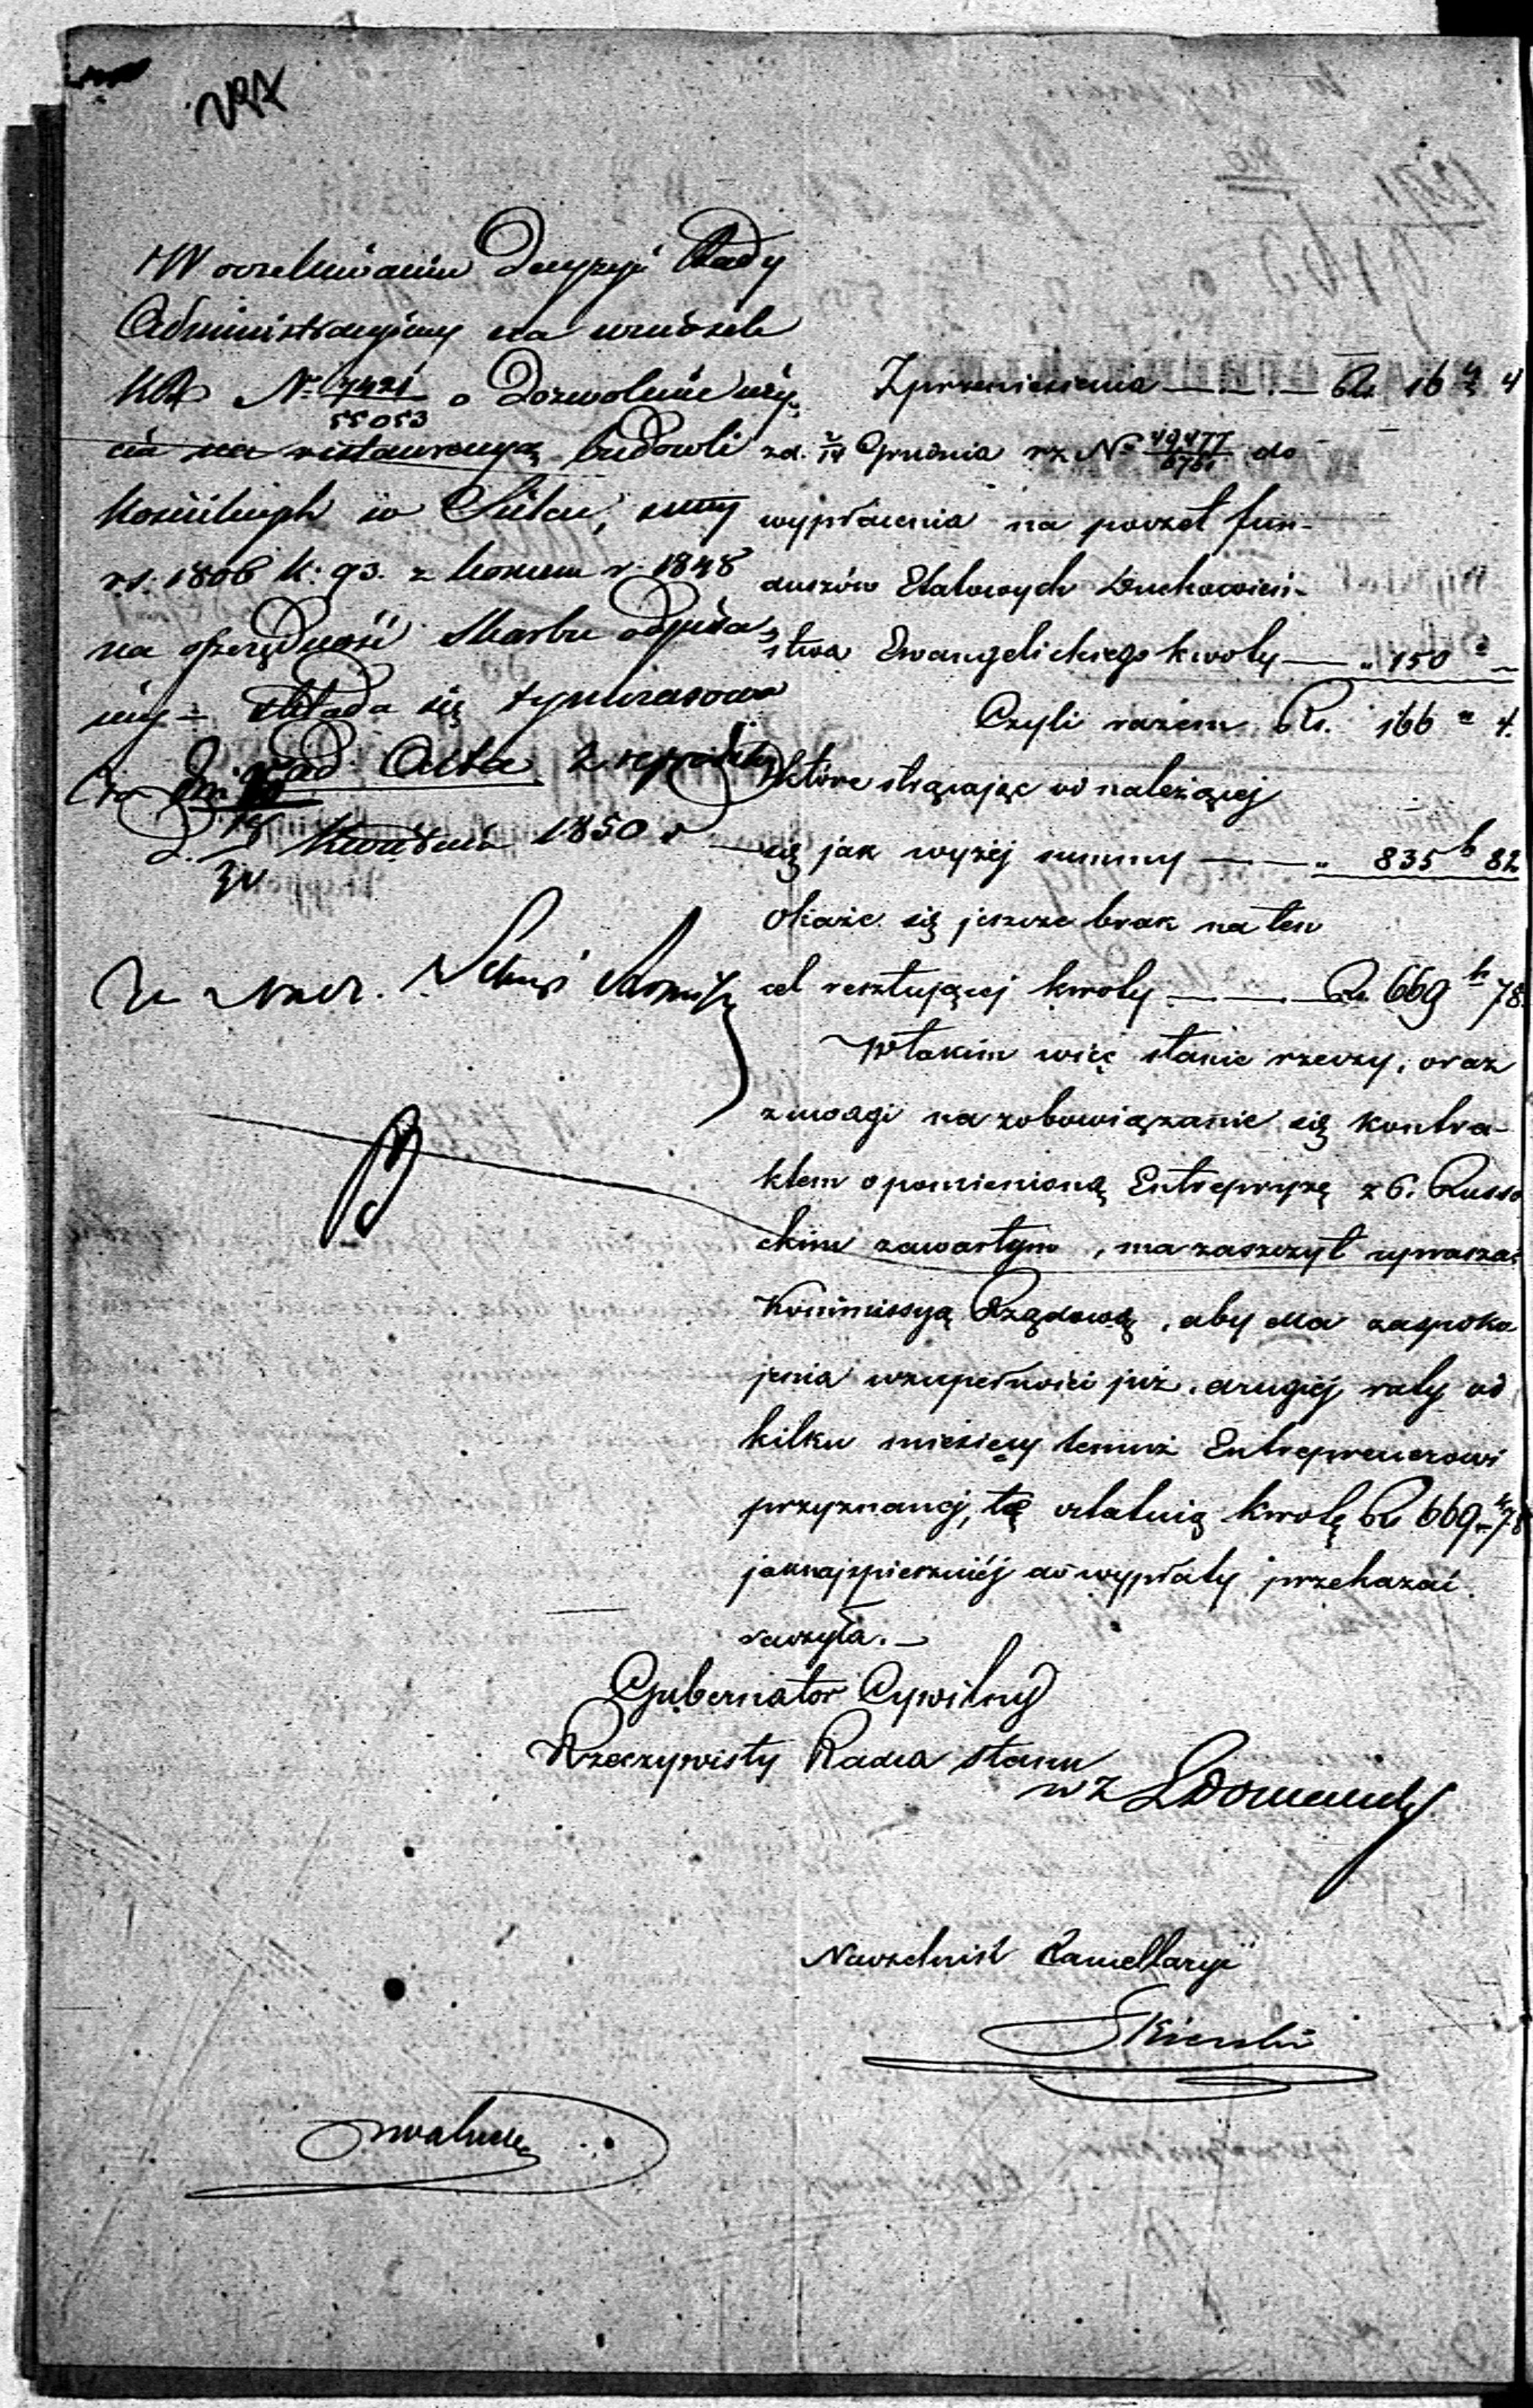 297
W oczekiwaniu Decyzyi Rady
Administracyjnej na wniosek
KR No 7421/55053 o dozwolenie uży-
cia na restauracyą budowli
Kościelnych w Sielcu, summy
rs. 1806 k. 93. z r. 1848
na oszczędność Skarbu
składa się tymczasowo
ad Acta z
d. 18/30 Kwietnia 1850 r
Z przeniesienia — Rs. 16 k 4
z d. 2/14 Grudnia r z No 49477/6781 do
wypłacenia na poczet fun-
duszów Etatowych Duchowień-
stwa Ewangelickiego kwoty — „ 150 „ —
Czyli razem Rs. 166 „ 4.
które strącając od należącej
się jak wyżej summy — „ 835 k 82
okaże się jeszcze brak na ten
cel resztującej kwoty — Rs 669 k 78.
W takim więc stanie rzeczy, oraz
z uwagi na zobowiązanie się kontra-
ktem o pomienioną Entrepryzę z G. Russo
ckim zawartym, ma zaszczyt upraszać
Kommissyą Rządową, aby dla zaspoko
jenia wzupełności już drugiej raty od
kilku miesięcy temuż Entreprenerowi
przyznanej, tę ostatnią kwotę Rs 669 k 78
jaknajspieszniéj do wypłaty przekazać
raczyła. —
Gubernator Cywilny
Rzeczywisty Radca Stanu
w z
Naczelnik Kancellaryi